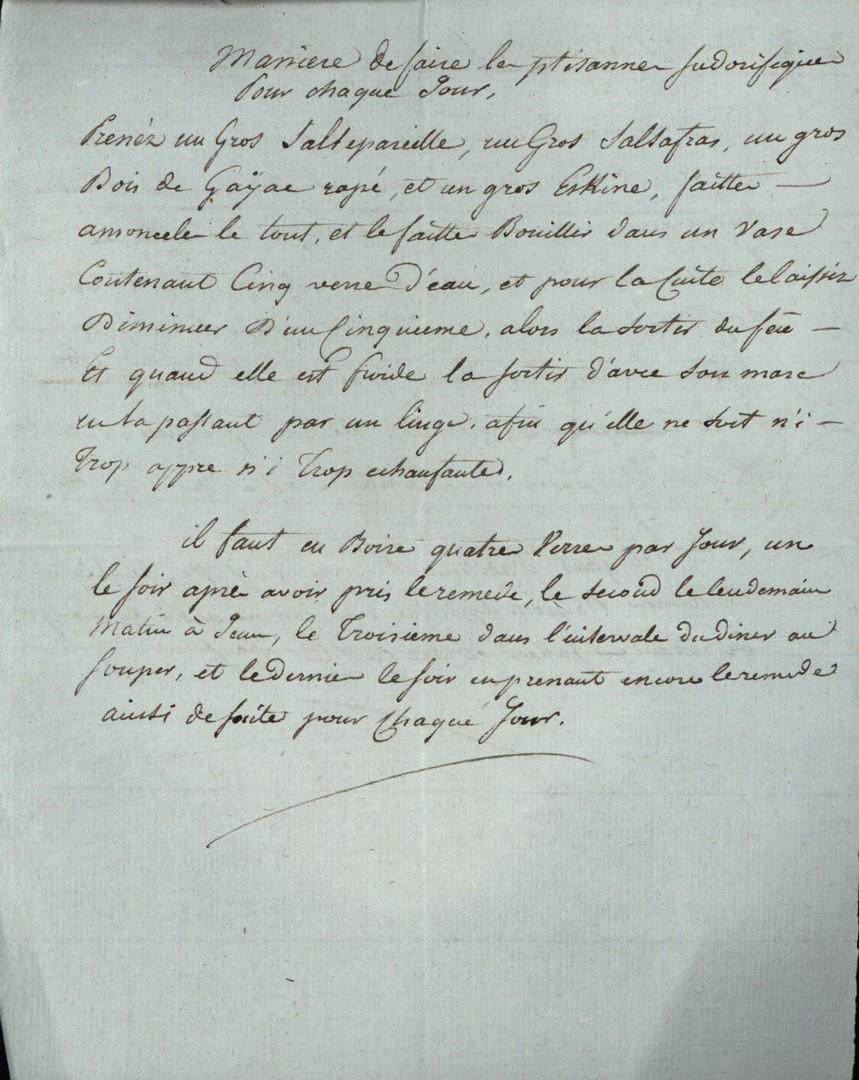 Maniere de faire la ptisanne sudorifique
Pour chaque Jour,
Prenéz un Gros Salsepareille, un Gros Salsafras, un gros
Bois de Gaÿac rapé, et un gros Eskine, faitte —
amoncele le tout, et le faitte Bouillir dans un Vase
Contenant Cinq verre d'eau, et pour la Cuite le laissér
Diminuer D'un Cinquieme, alors la sortir du feu —
Et quand elle est froide la sortir d'avec son marc
en la passant par un linge, afin qu'elle ne soit n'i —
Trop appre n'i Trop echaufante.
il faut en Boire quatre Verre par Jour, un
le soir aprè avoir pris le remede, le second le lendemain
Matin à Jeun, le Troisieme dans l'intervale du diner au
souper, et le dernier le soir en prenant encore le remede
ainsi de suite pour Chaque Jour.